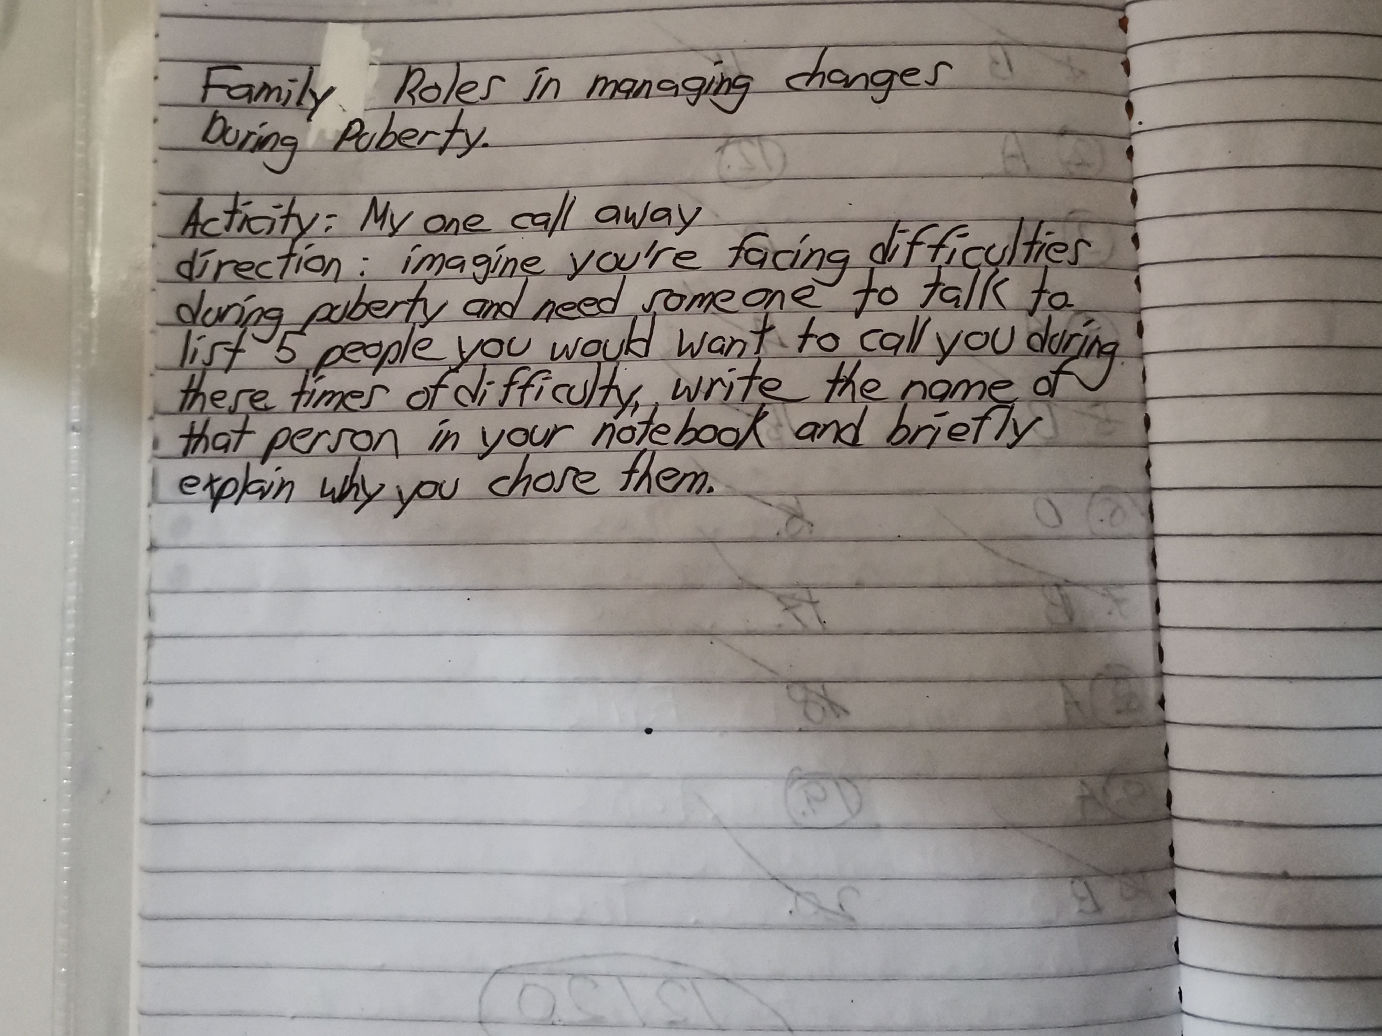 Family Roles in managing changes
During Puberty.
Acticity: My one call away
direction: imagine you're facing difficulties
during puberty and need someone to talk to
list 5 people you would want to call you during
these times of difficulty, write the name of
that person in your notebook and briefly
explain why you chose them.